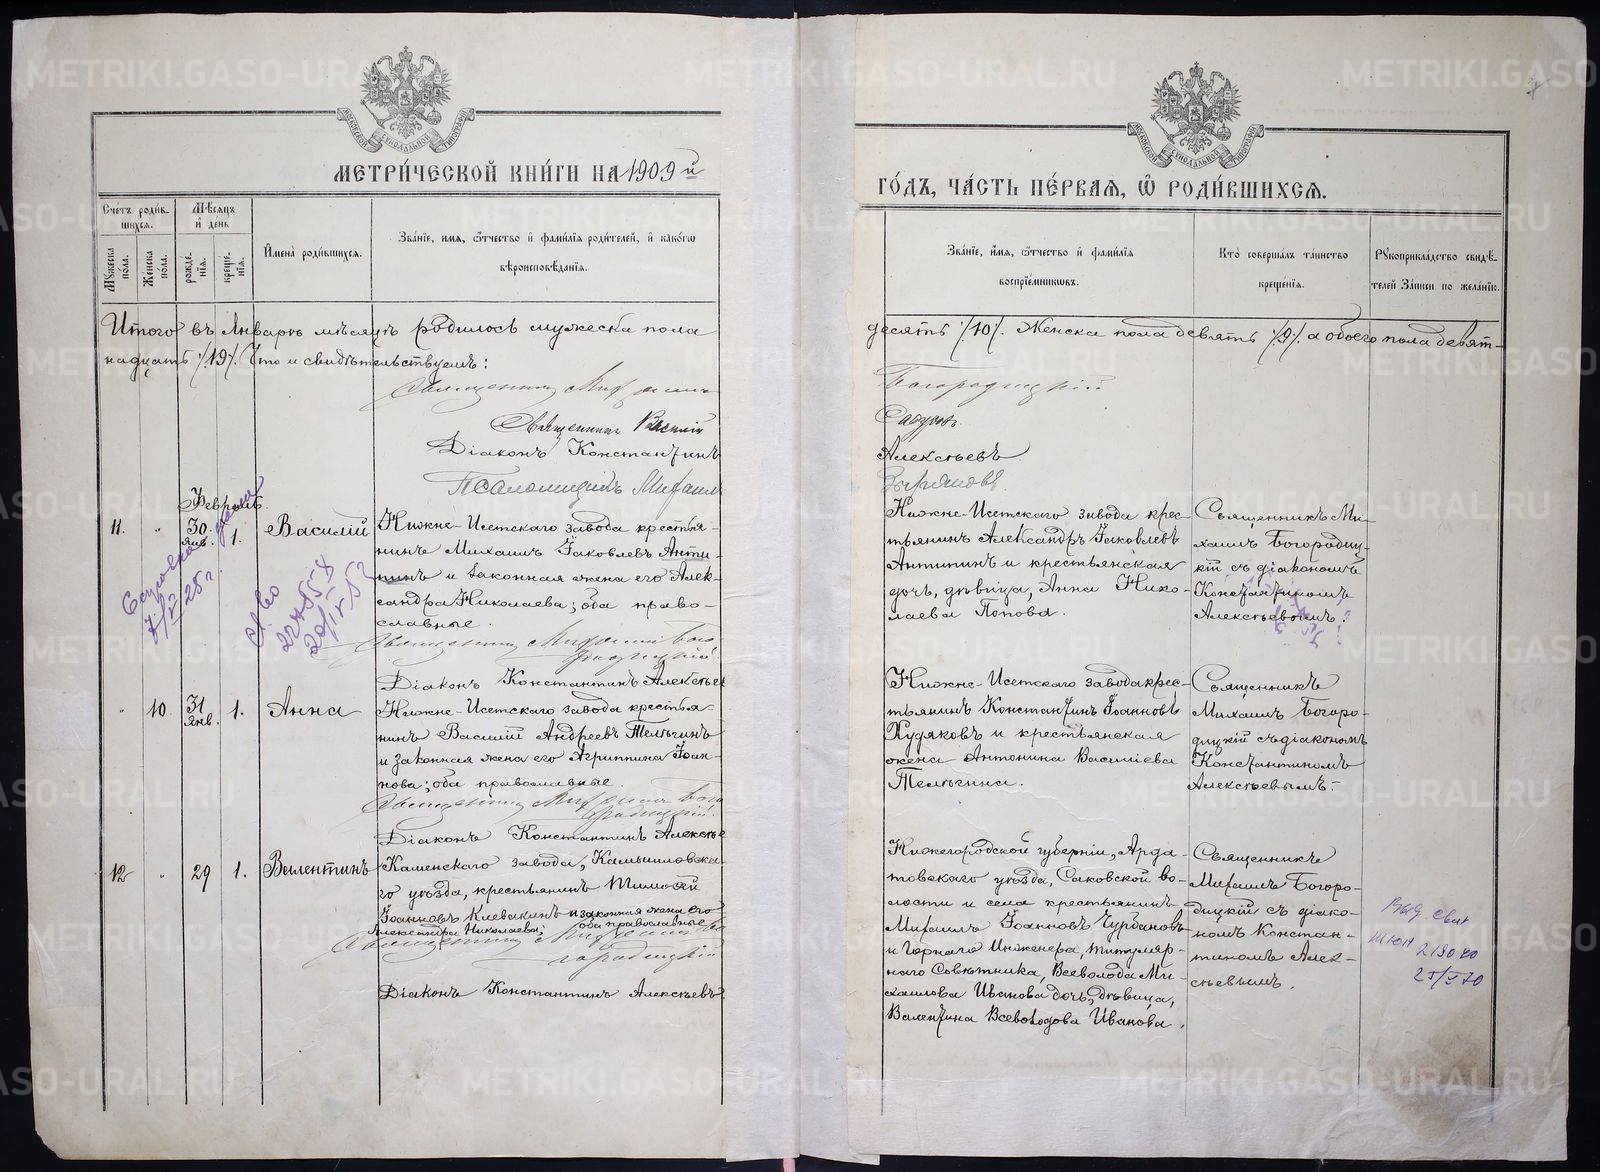 МЕТРИ́ЧЕСКОЙ КНИ́ГИ НА 1909 й
ГО́ДЪ, ЧА́СТЬ ПЕ́РВАЯ, Ѿ РОДИ́ВШИХСЯ.
Сче́тъ роди́в-
шихся.
Му́жеска по́ла.
Же́нска по́ла.
Мѣ́сяцъ и́ де́нь
рожде́-
нїя.
креще́-
нїя.
И҆мена̀ роди́вшихся.
Зва́нїе, и҆́мя, ѻ҆́тчество и҆ фами́лїя роди́телей, и҆ како́гѡ
вѣроисповѣ́данїя.
Зва́нїе, и҆́мя, ѻ҆́тчество и҆ фами́лїя
воспрїе́мниковъ.
Кто̀ соверша́лъ та́инство
креще́нїя.
Рꙋкоприкла́дство свидѣ́-
телей За́писи по жела́нїю.
Итого въ Январѣ мѣсяцѣ родилось мужеска пола
десять /10/. Женска пола девять /9/. а обоего пола девят-
надцать /19/. Что и свидѣтельствуемъ:
Священникъ Михаилъ
Богородицкій
Священникъ Василій
Діаконъ Константинъ
Алексѣевъ
Псаломщикъ Михаилъ
Февраль.
11. " 30 янв. 1. Василій
Нижне-Исетскаго завода крестья-
нинъ Михаилъ Іаковлевъ Анти-
пинъ и законная жена его Алек-
сандра Николаева; оба право-
славные.
Священникъ Михаилъ Бого
родицкій
Діаконъ Константинъ Алексѣев
Нижне-Исетскаго завода крес-
тьянинъ Александръ Іаковлевъ
Антипинъ и крестьянская
дочь, дѣвица, Анна Нико-
лаева Попова.
Священникъ Ми-
хаилъ Богородиц-
кій съ діакономъ
Константиномъ
Алексѣевымъ.
7/V 25 г.
Св-во
" 10. 31 янв. 1. Анна
Нижне-Исетскаго завода крестья-
нинъ Василій Андреевъ Телѣгинъ
и законная жена его Агриппина Іоан-
нова; оба православные.
Священникъ Михаилъ Бого
родицкій.
Діаконъ Константинъ Алексѣе
Нижне-Исетскаго завода крес-
тьянинъ Константинъ Іоанновъ
Худяковъ и крестьянская
жена Антонина Василіева
Телѣгина.
Священникъ
Михаилъ Богоро-
дицкій съ діакономъ
Константиномъ
Алексѣевымъ.
12 " 29 1. Валентинъ
Каменскаго завода, Камышловска-
го уѣзда, крестьянинъ Тимоѳей
Іоанновъ Клевакинъ и законная жена его
Александра Николаева; оба православные
Священникъ Михаилъ Бо
городицкій
Діаконъ Константинъ Алексѣевъ
Нижегородской губерніи, Арда-
товскаго уѣзда, Саковской во-
лости и села крестьянинъ
Михаилъ Іоанновъ Чурбановъ
и Горнаго Инженера, титуляр-
наго Совѣтника, Всеволода Ми-
хаилова Иванова дочь, дѣвица,
Валентина Всеволодова Иванова.
Священникъ
Михаилъ Богоро-
дицкій съ діако-
номъ Констан-
тиномъ Алек-
сѣевымъ.
Выд свид
25/V 70